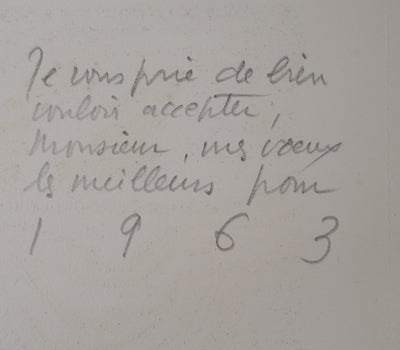 Je vous prie de bien
vouloir accepter,
Monsieur, mes voeux
les meilleurs pour
1 9 6 3